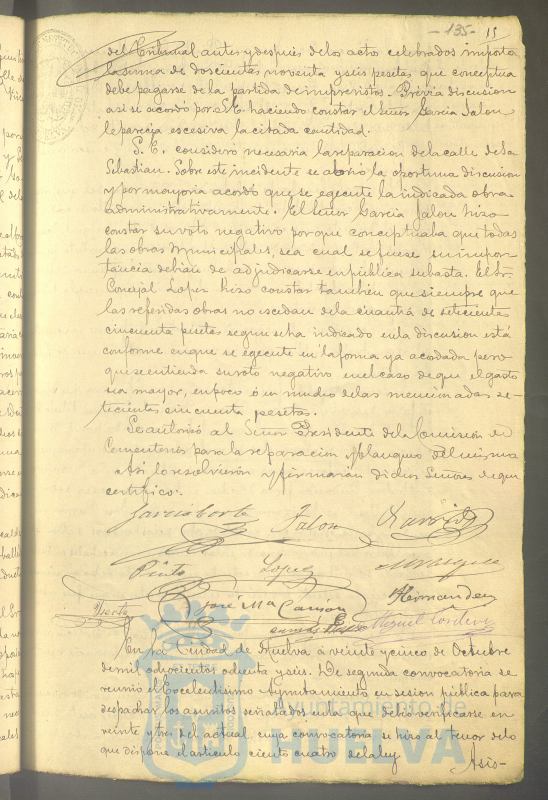 -135- 15
del Tribunal, antes y despues de los actos celebrados importa
la suma de doscientas noventa y seis pesetas que conceptua
debe pagarse de la partida de imprevistos. Prévia discusion
asi se acordó por S.E. haciendo constar el Señor Garcia Jalon
le parecia escesiva la citada cantidad.
S.E. consideró necesaria la reparacion de la calle de San
Sebastian. Sobre este incidente se abrió la oportuna discusion
y por mayoria acordó que se egecute la indicada obra
administrativamente. El Señor Garcia Jalon hizo
constar su voto negativo porque conceptuaba que todas
las obras Municipales, sea cual se fuese su impor
tancia debian de adjudicarse en pública subasta. El Sr.
Concejal Lopez hizo constar tambien que siempre que
las referidas obras no escedan de la cuantia de setecientas
cincuenta pesetas segun se ha indicado en la discusion está
conforme en que se egecute en la forma ya acordada pero
que se entienda su voto negativo en el caso de que el gasto
sea mayor, en poco ó en mucho de las mencionadas se-
tecientas cincuenta pesetas.
Se autorizó al Señor Presidente de la Comision de
Cementerios para la reparacion y blanqueo del mismo
Asi lo resolvieron y firmarán dichos Señores de que
certifico.
Garcia Jalon
Pinto Lopez
José Mª Carrion Hernandez
En la Ciudad de Huelva á veinte y cinco de Octubre
de mil ochocientos ochenta y seis. De segunda convocatoria se
reunió el Excelentisimo Ayuntamiento en sesion pública para
despachar los asuntos señalados en la que debió verificarse en
veinte y tres del actual, cuya convocatoria se hizo al tenor de lo
que dispone el articulo ciento cuatro de la ley
Asis-
Ayuntamiento de
HUELVA